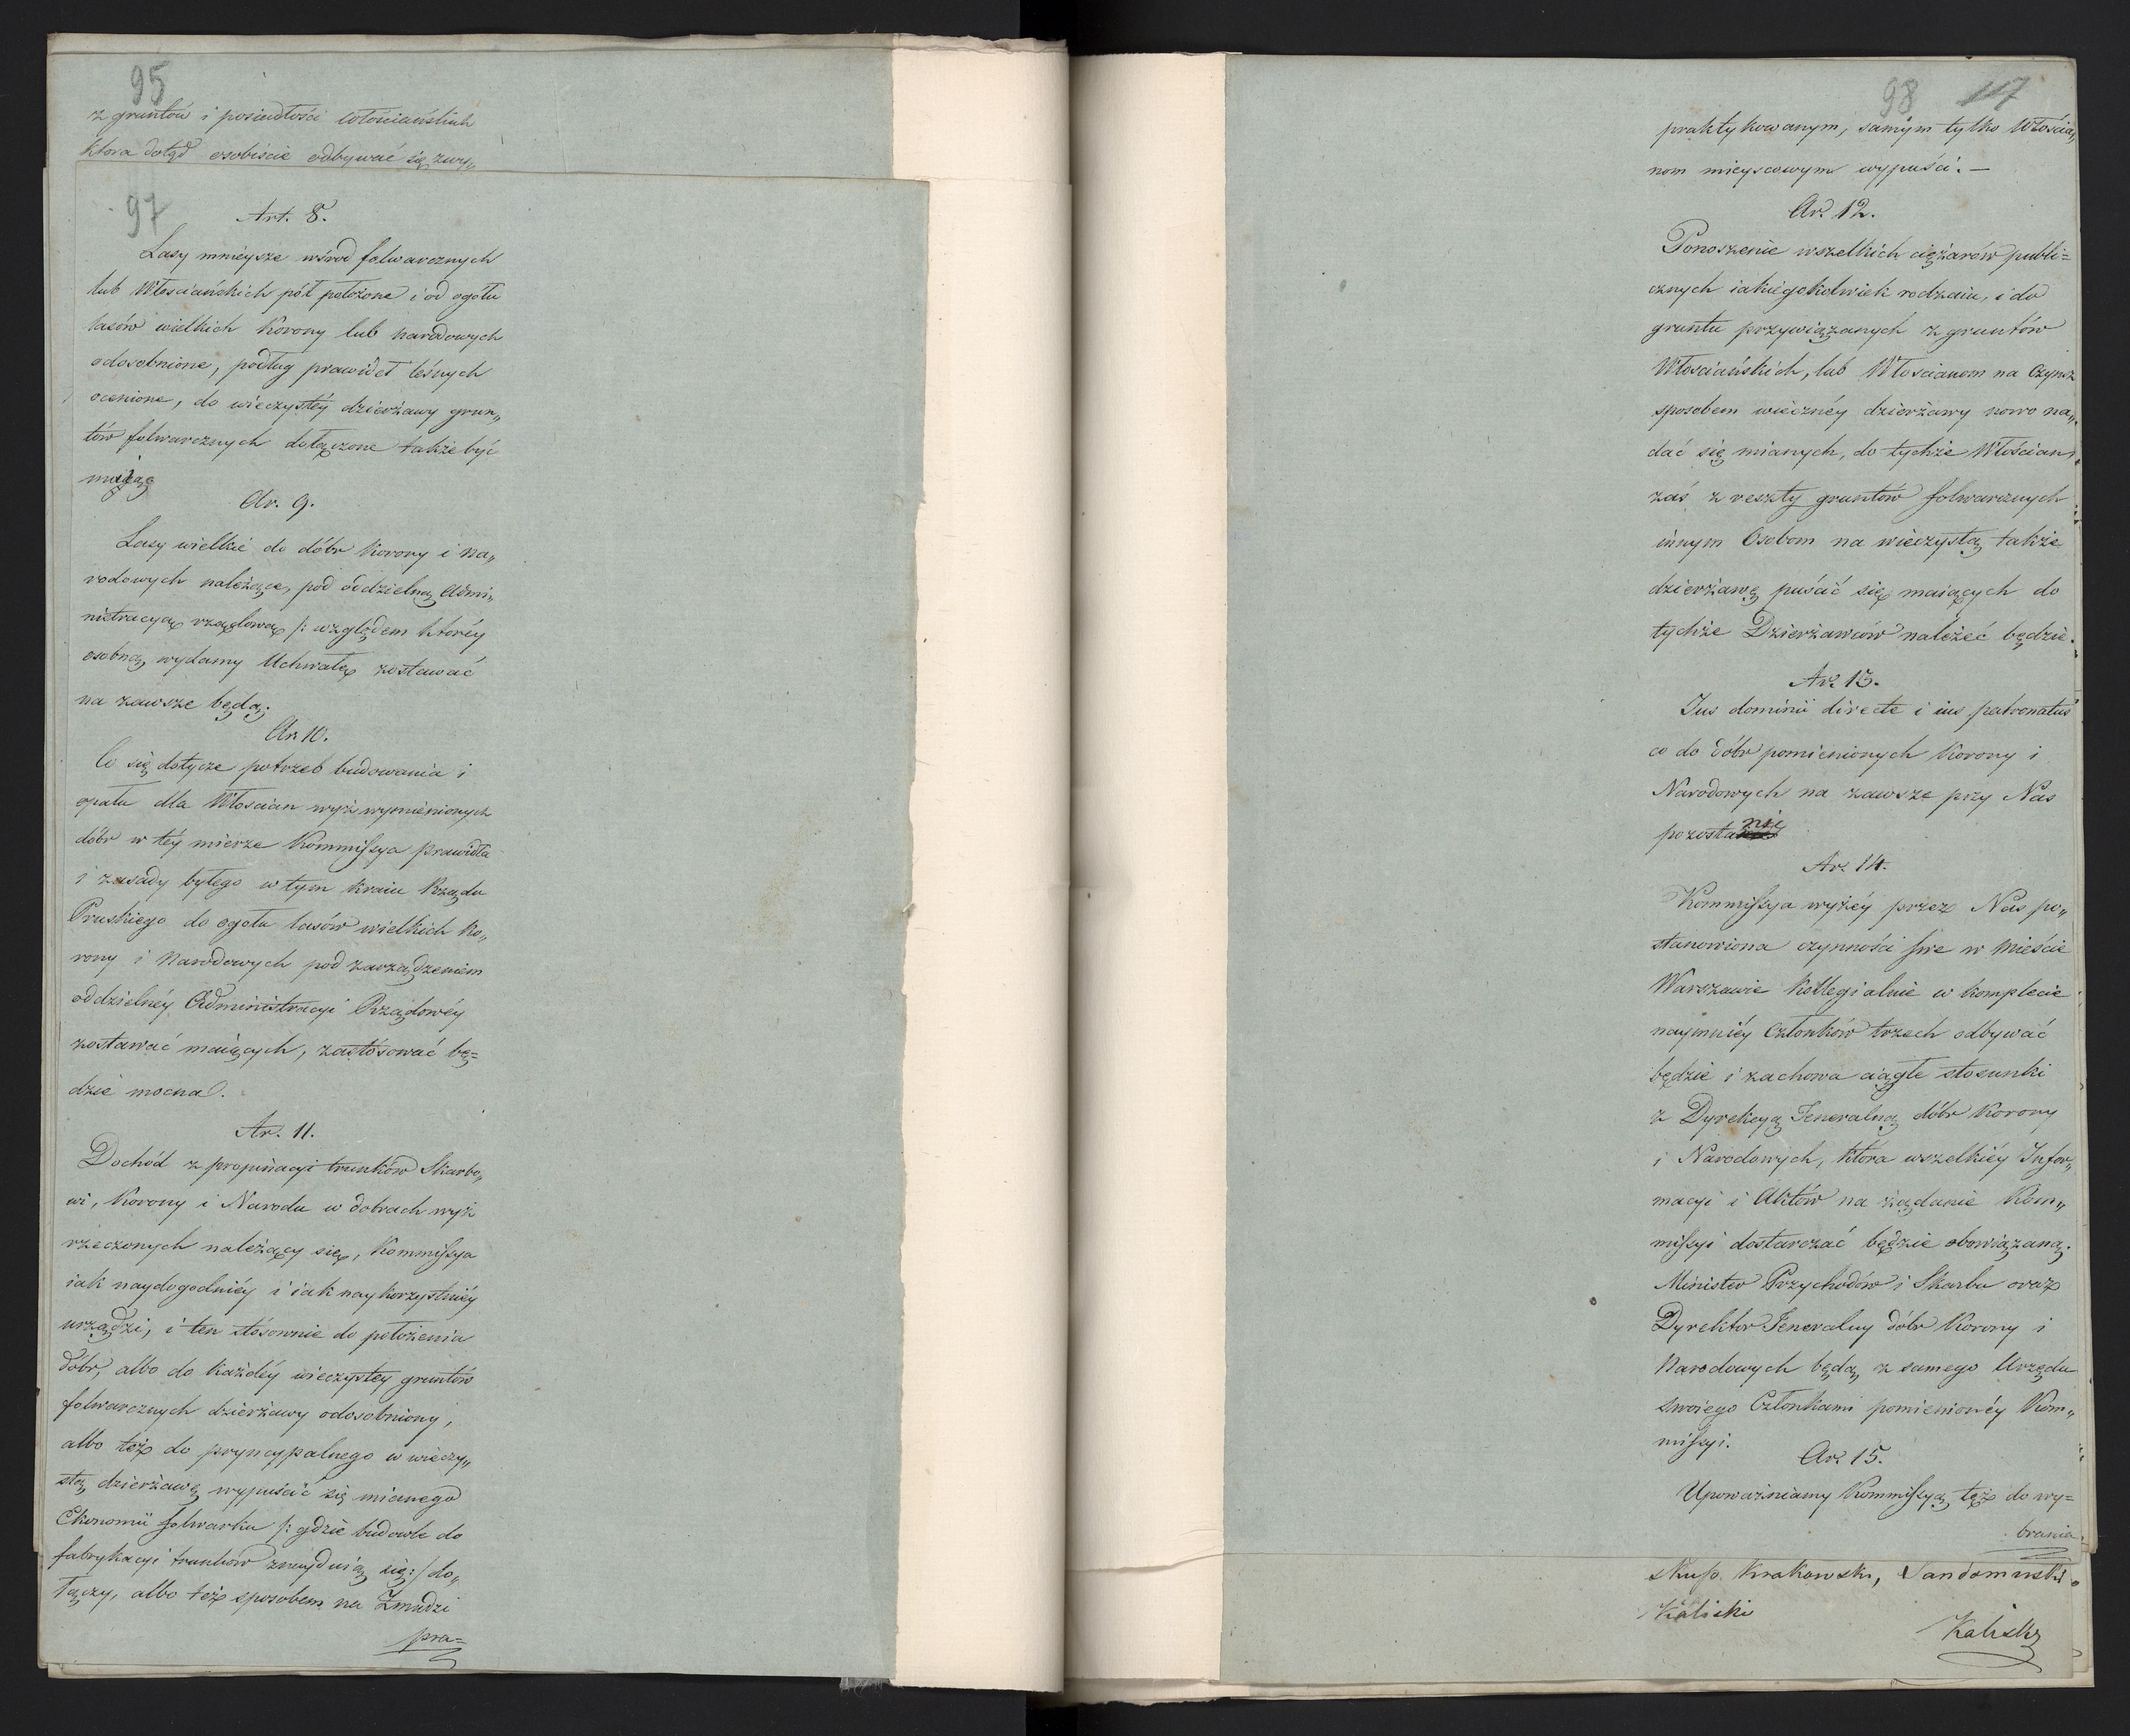 95
z gruntów i posiadłości włościańskich
ktora dotąd osobiście odbywać się zwy„
97
Art. 8.
Lasy mnieysze wśrod folwarcznych
lub Włosciańskich pól położone i od ogółu
lasów wielkich Korony lub narodowych
odosobnione, podług prawideł leśnych
ocenione, do wieczystéy dzierżawy grun„
tów folwarcznych dołączone także być
maią
Ar. 9.
Lasy wielkie do dóbr Korony i na„
rodowych należące, pod oddzielną Admi„
nistracyą rządową /: względem któréy
osobną wydamy Uchwałę zostawać
na zawsze będą.
Ar. 10.
Co się dotycze potrzeb budowania i
opału dla Włoscian wyż wymienionych
dóbr w téy mierze Kommissya prawidła
i zasady byłego w tym kraiu Rządu
Pruskiego do ogółu lasów wielkich Ko„
rony i Narodowych pod zarządzeniem
oddzielnéy Administracyi Rządowéy
zostawać maiących, zastósować bę=
dzie mocna.
Ar. 11.
Dochód z propinacyi trunków Skarbo„
wi, Korony i Narodu w dobrach wyż
rzeczonych należący się, Kommissya
iak naydogodniéy i iak naykorzystniéy
urządzi, i ten stósownie do położenia
dóbr, albo do każdéy wieczystéy gruntów
folwarcznych dzierżawy odosobniony,
albo też do pryncypalnego w wieczy„
stą dzierżawę wypuścić się mianego
Ekonomii folwarku /: gdzie budowle do
fabrykacyi trunków znayduią się :/ do„
łączy, albo też sposobem na Żmudzi
pra=
98 117
praktykowanym, samym tylko Włościa„
nom mieyscowym wypuści. —
Ar. 12.
Ponoszenie wszelkich ciężarów publi=
cznych iakiegokolwiek rodzaiu, i do
gruntu przywiązanych z gruntów
Włosciańskich, lub Włoscianom na Czynsz
sposobem wiecznéy dzierżawy nowo na„
dać się mianych, do tychże Włościan
zaś z reszty gruntów folwarcznych
innym Osobom na wieczystą także
dzierżawę puścić się maiących do
tychże Dzierżawców należeć będzie.
Ar. 13.
Jus dominii directe i ius patronatus
co do dóbr pomienionych Korony i
Narodowych na zawsze przy Nas
pozostanie
Ar. 14.
Kommissya wyżéy przez Nas po„
stanowiona czynności swe w Mieście
Warszawie kollegialnie w komplecie
naymniéy Członków trzech odbywać
będzie i zachowa ciągłe stosunki
z Dyrekcyą Jeneralną dóbr Korony
i Narodowych, która wszelkiéy Infor„
macyi i Aktów na żądanie Kom„
missyi dostarczać będzie obowiązaną.
Minister Przychodów i Skarbu oraz
Dyrektor Jeneralny dóbr Korony i
Narodowych będą z samego Urzędu
swoiego Członkami pomienionéy Kom„
missyi.
Ar. 15.
Upoważniamy Kommissyą też do wy=
brania
Krakowski,
Kaliski
Kaliski